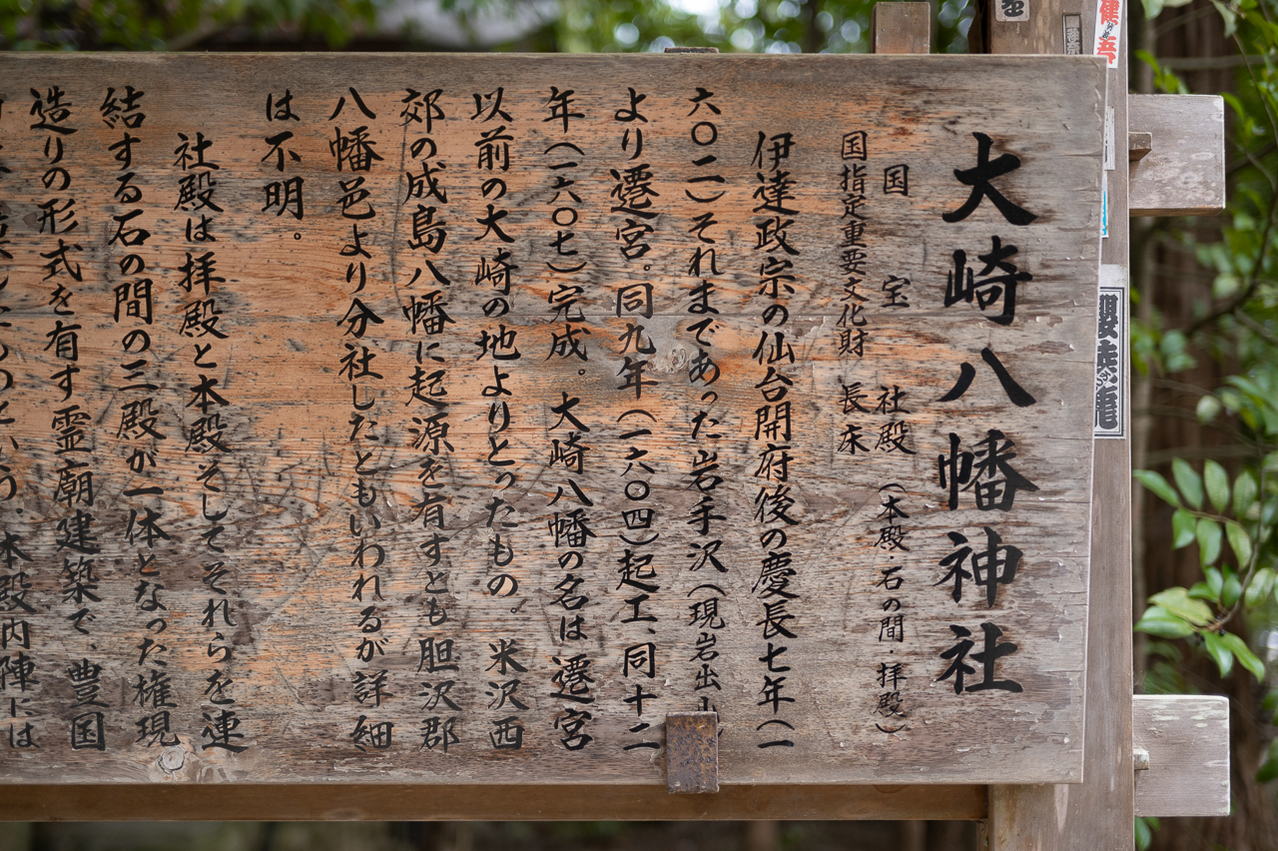 大崎八幡神社
国宝 社殿（本殿石の間・拝殿）
国指定重要文化財 長床
伊達政宗の仙台開府後の慶長七年（一
六〇二）それまであった岩手沢（現岩出山
より遷宮。同九年（一六〇四）起工、同十二
年（一六〇七）完成。大崎八幡の名は遷宮
以前の大崎の地よりとったもの。米沢西
郊の成島八幡に起源を有すとも胆沢郡
八幡邑より分社したともいわれるが詳細
は不明。
社殿は拝殿と本殿そしてそれらを連
結する石の間の三殿が一体となった権現
造りの形式を有す霊廟建築で、豊国
という。本殿内陣には